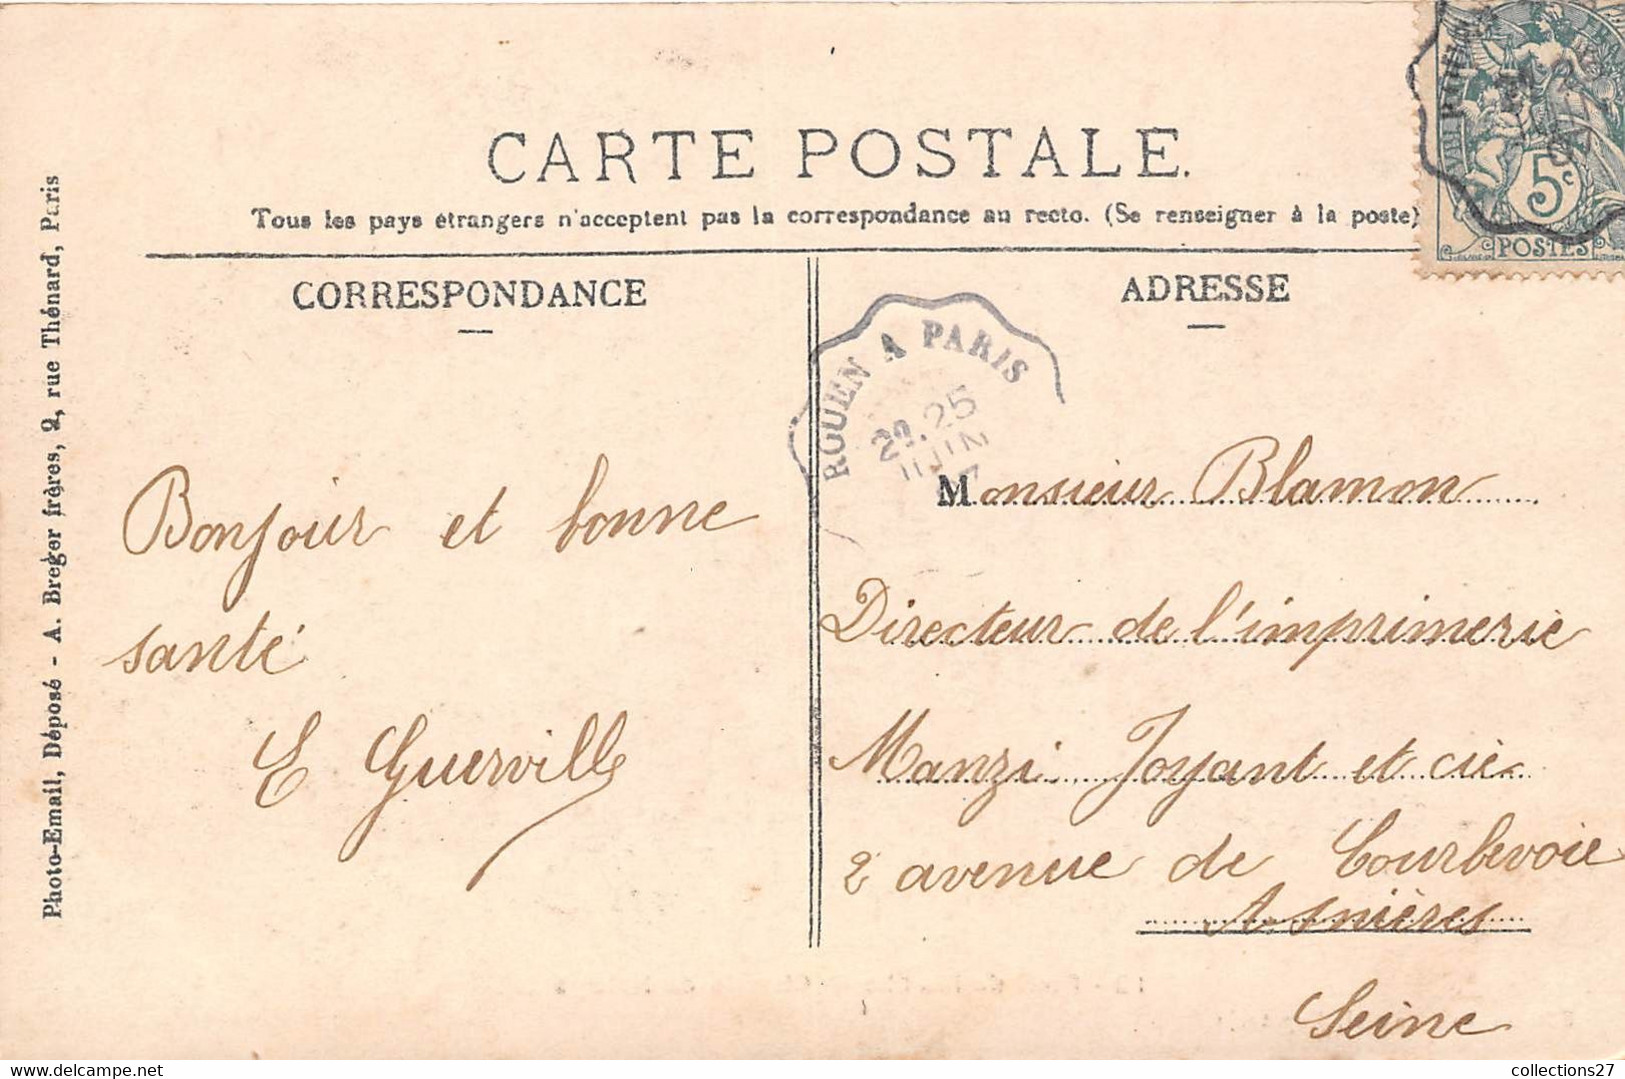 CARTE POSTALE.
Tous les pays étrangers n'acceptent pas la correspondance au recto. (Se renseigner à la poste)
5c
POSTES
CORRESPONDANCE
ADRESSE
ROUEN A PARIS
25
JUIN
Bonjour et bonne
santé
E Guerville
Monsieur Blamon
Directeur de l'imprimerie
Manzi Joyant et cie
2 avenue de Courbevoie
Asnières
Seine
Photo-Email, Déposé - A. Breger frères, 9, rue Thénard, Paris
collections27